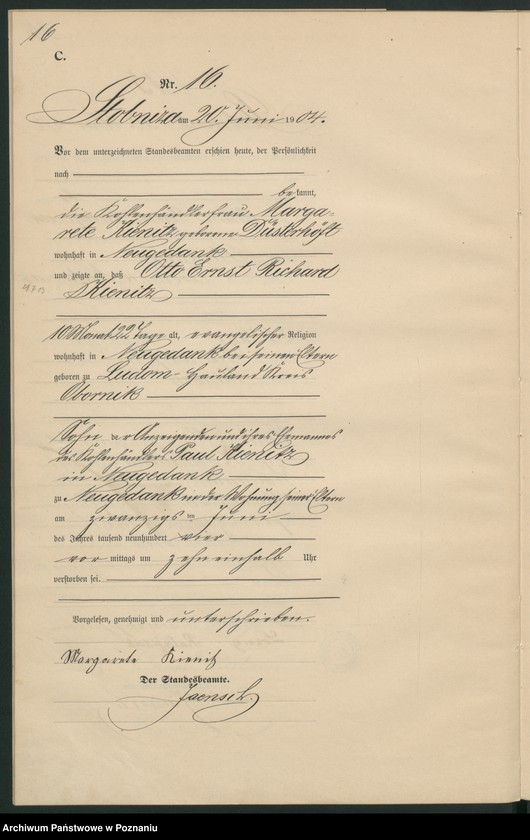 16
C.
Nr. 16.
Stobnica am 20. Juni 1904.
Vor dem unterzeichneten Standesbeamten erschien heute, der Persönlichkeit
nach
bekannt,
die Kohlenhändlerfrau Marga-
rete Kienitz geborene Düsterhöft
wohnhaft in Neugedank
und zeigte an, daß Otto Ernst Richard
Kienitz
10 Monat 22 Tage alt, evangelischer Religion
wohnhaft in Neugedank bei seinen Eltern
geboren zu Ludom-Hauland Kreis
Obornik
Sohn der Anzeigenden und ihres Ehemannes
des Kohlenhändlers Paul Kienitz
in Neugedank
zu Neugedank in der Wohnung seiner Eltern
am zwanzigsten Juni
des Jahres tausend neunhundert vier
vor mittags um zehn einhalb Uhr
verstorben sei.
Vorgelesen, genehmigt und unterschrieben.
Margarete Kienitz
Der Standesbeamte.
Jaensch.
Archiwum Państwowe w Poznaniu